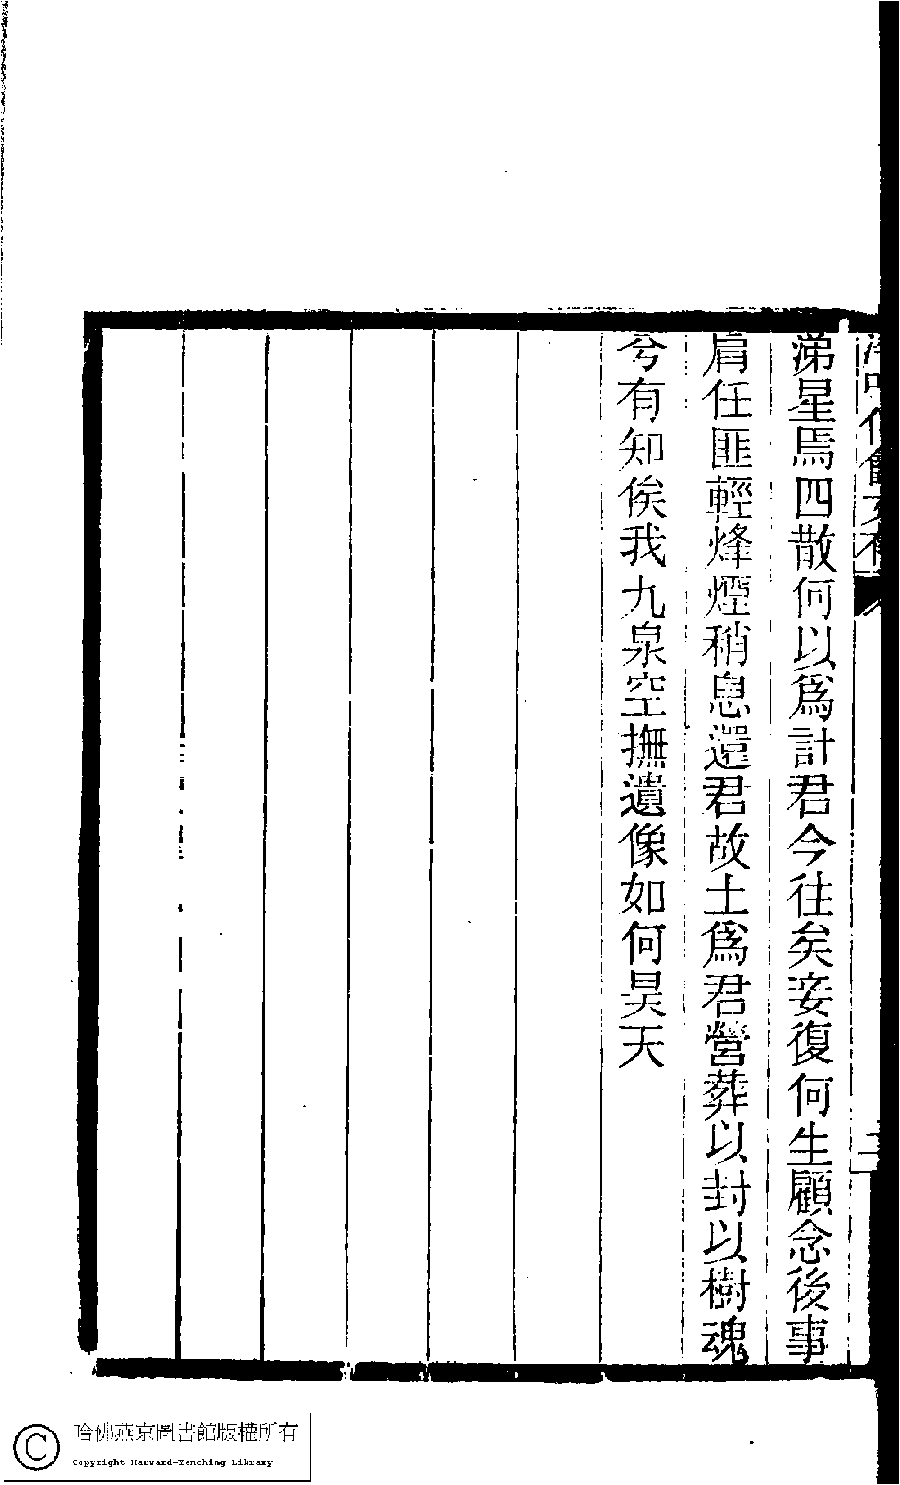 涕星焉四散何以爲計君今往矣妾復何生顧念後事
肩任匪輕烽煙稍息還君故土爲君營葬以封以樹魂
兮有知俟我九泉空撫遺像如何昊天
哈佛燕京圖書館版權所有
Copyright Harvard-Yenching Library